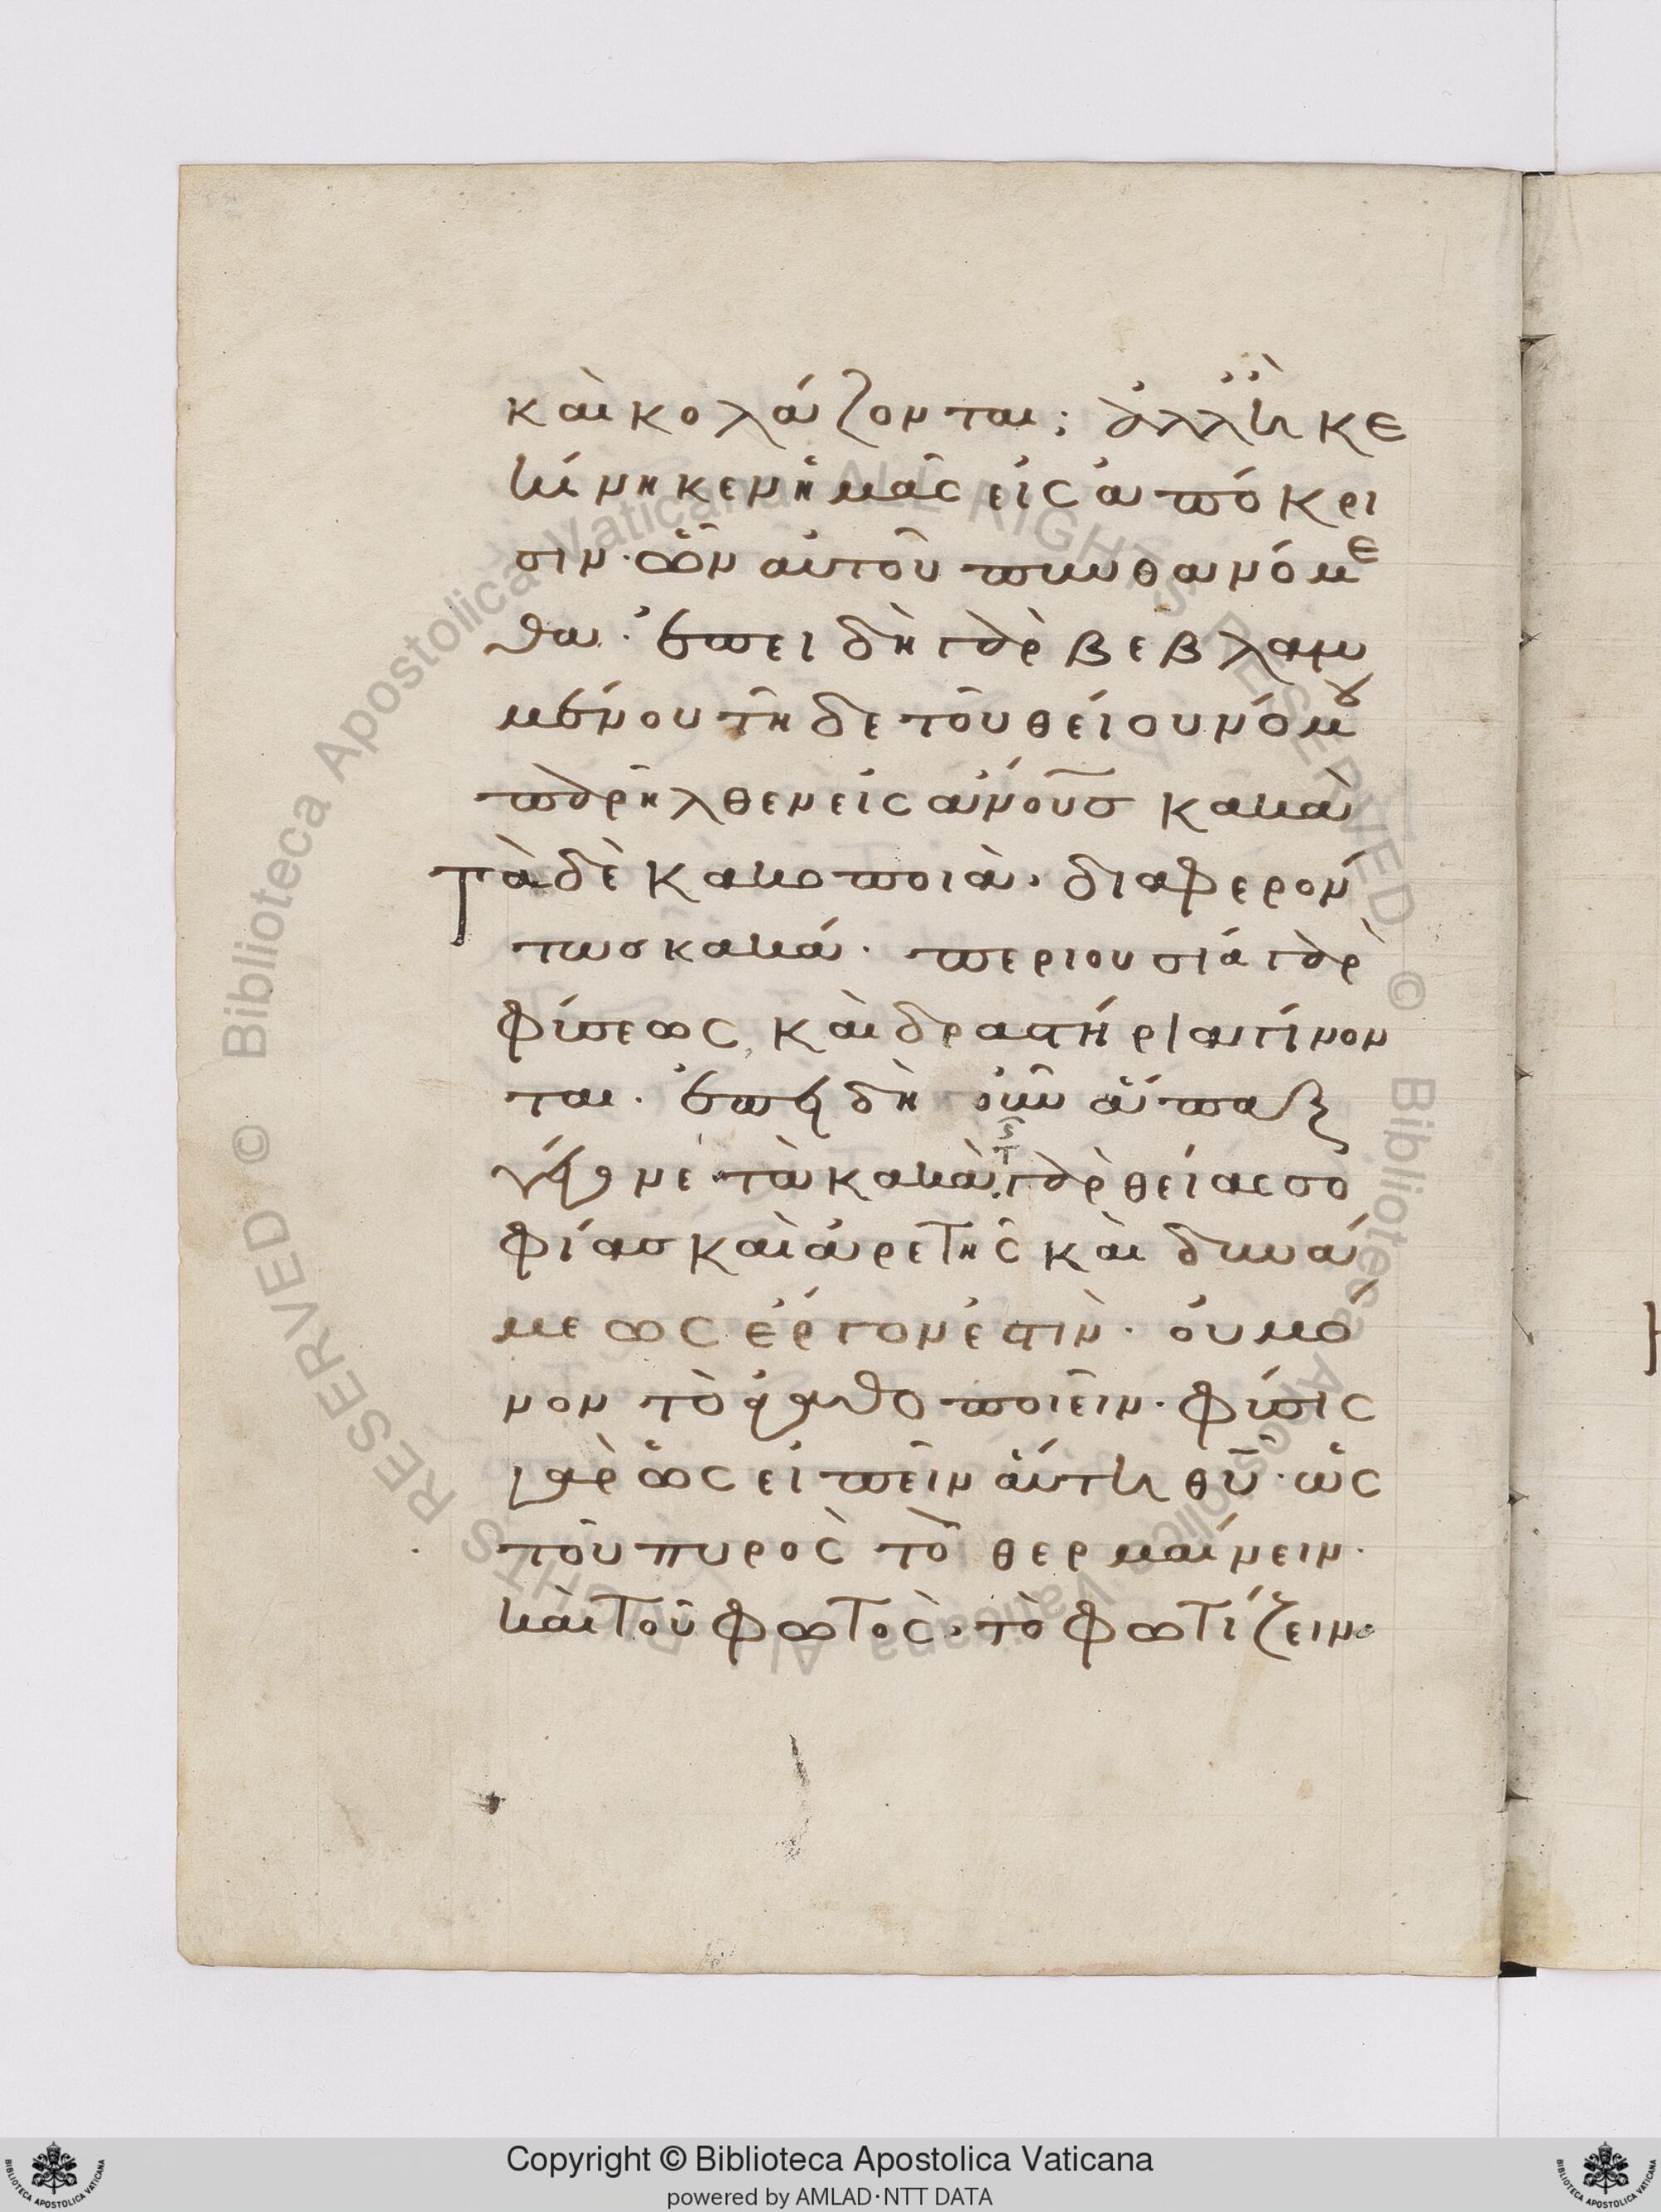 καὶ κολάζονται; ἀλλ' ἢ κε
κίνηκεν ἡμᾶς εἰς ἀπόκρι
σιν· ὧν αὐτοῦ πυνθανόμε
θα· ἐπειδὴ γὰρ βεβλαμ
μένου τῆδε τοῦ θείου νόμου
παρῆλθεν εἰς ἀνοῦσ κακὰ
τὰ δὲ κακοποιὰ· διαφερόν
τωσ κακά· περιουσία γὰρ
φύσεως, καὶ δραστήρια γίνον
ται· ἐπειδὴ οὖν ἅπαξ
γέγονε τὰ κακὰ· γὰρ θείας σο
φίασ καὶ ἀρετῆς καὶ δυνά
μεως ἔργον ἐστὶν· οὐ μό
νον τὸ ἀγαθοποιεῖν· φύσις
γὰρ ὡς εἰπεῖν αὕτη θυ· ὡς
τοῦ πυρὸς τὸ θερμαίνειν·
καὶ τοῦ φωτὸς· τὸ φωτίζειν·
Copyright © Biblioteca Apostolica Vaticana
powered by AMLAD·NTT DATA